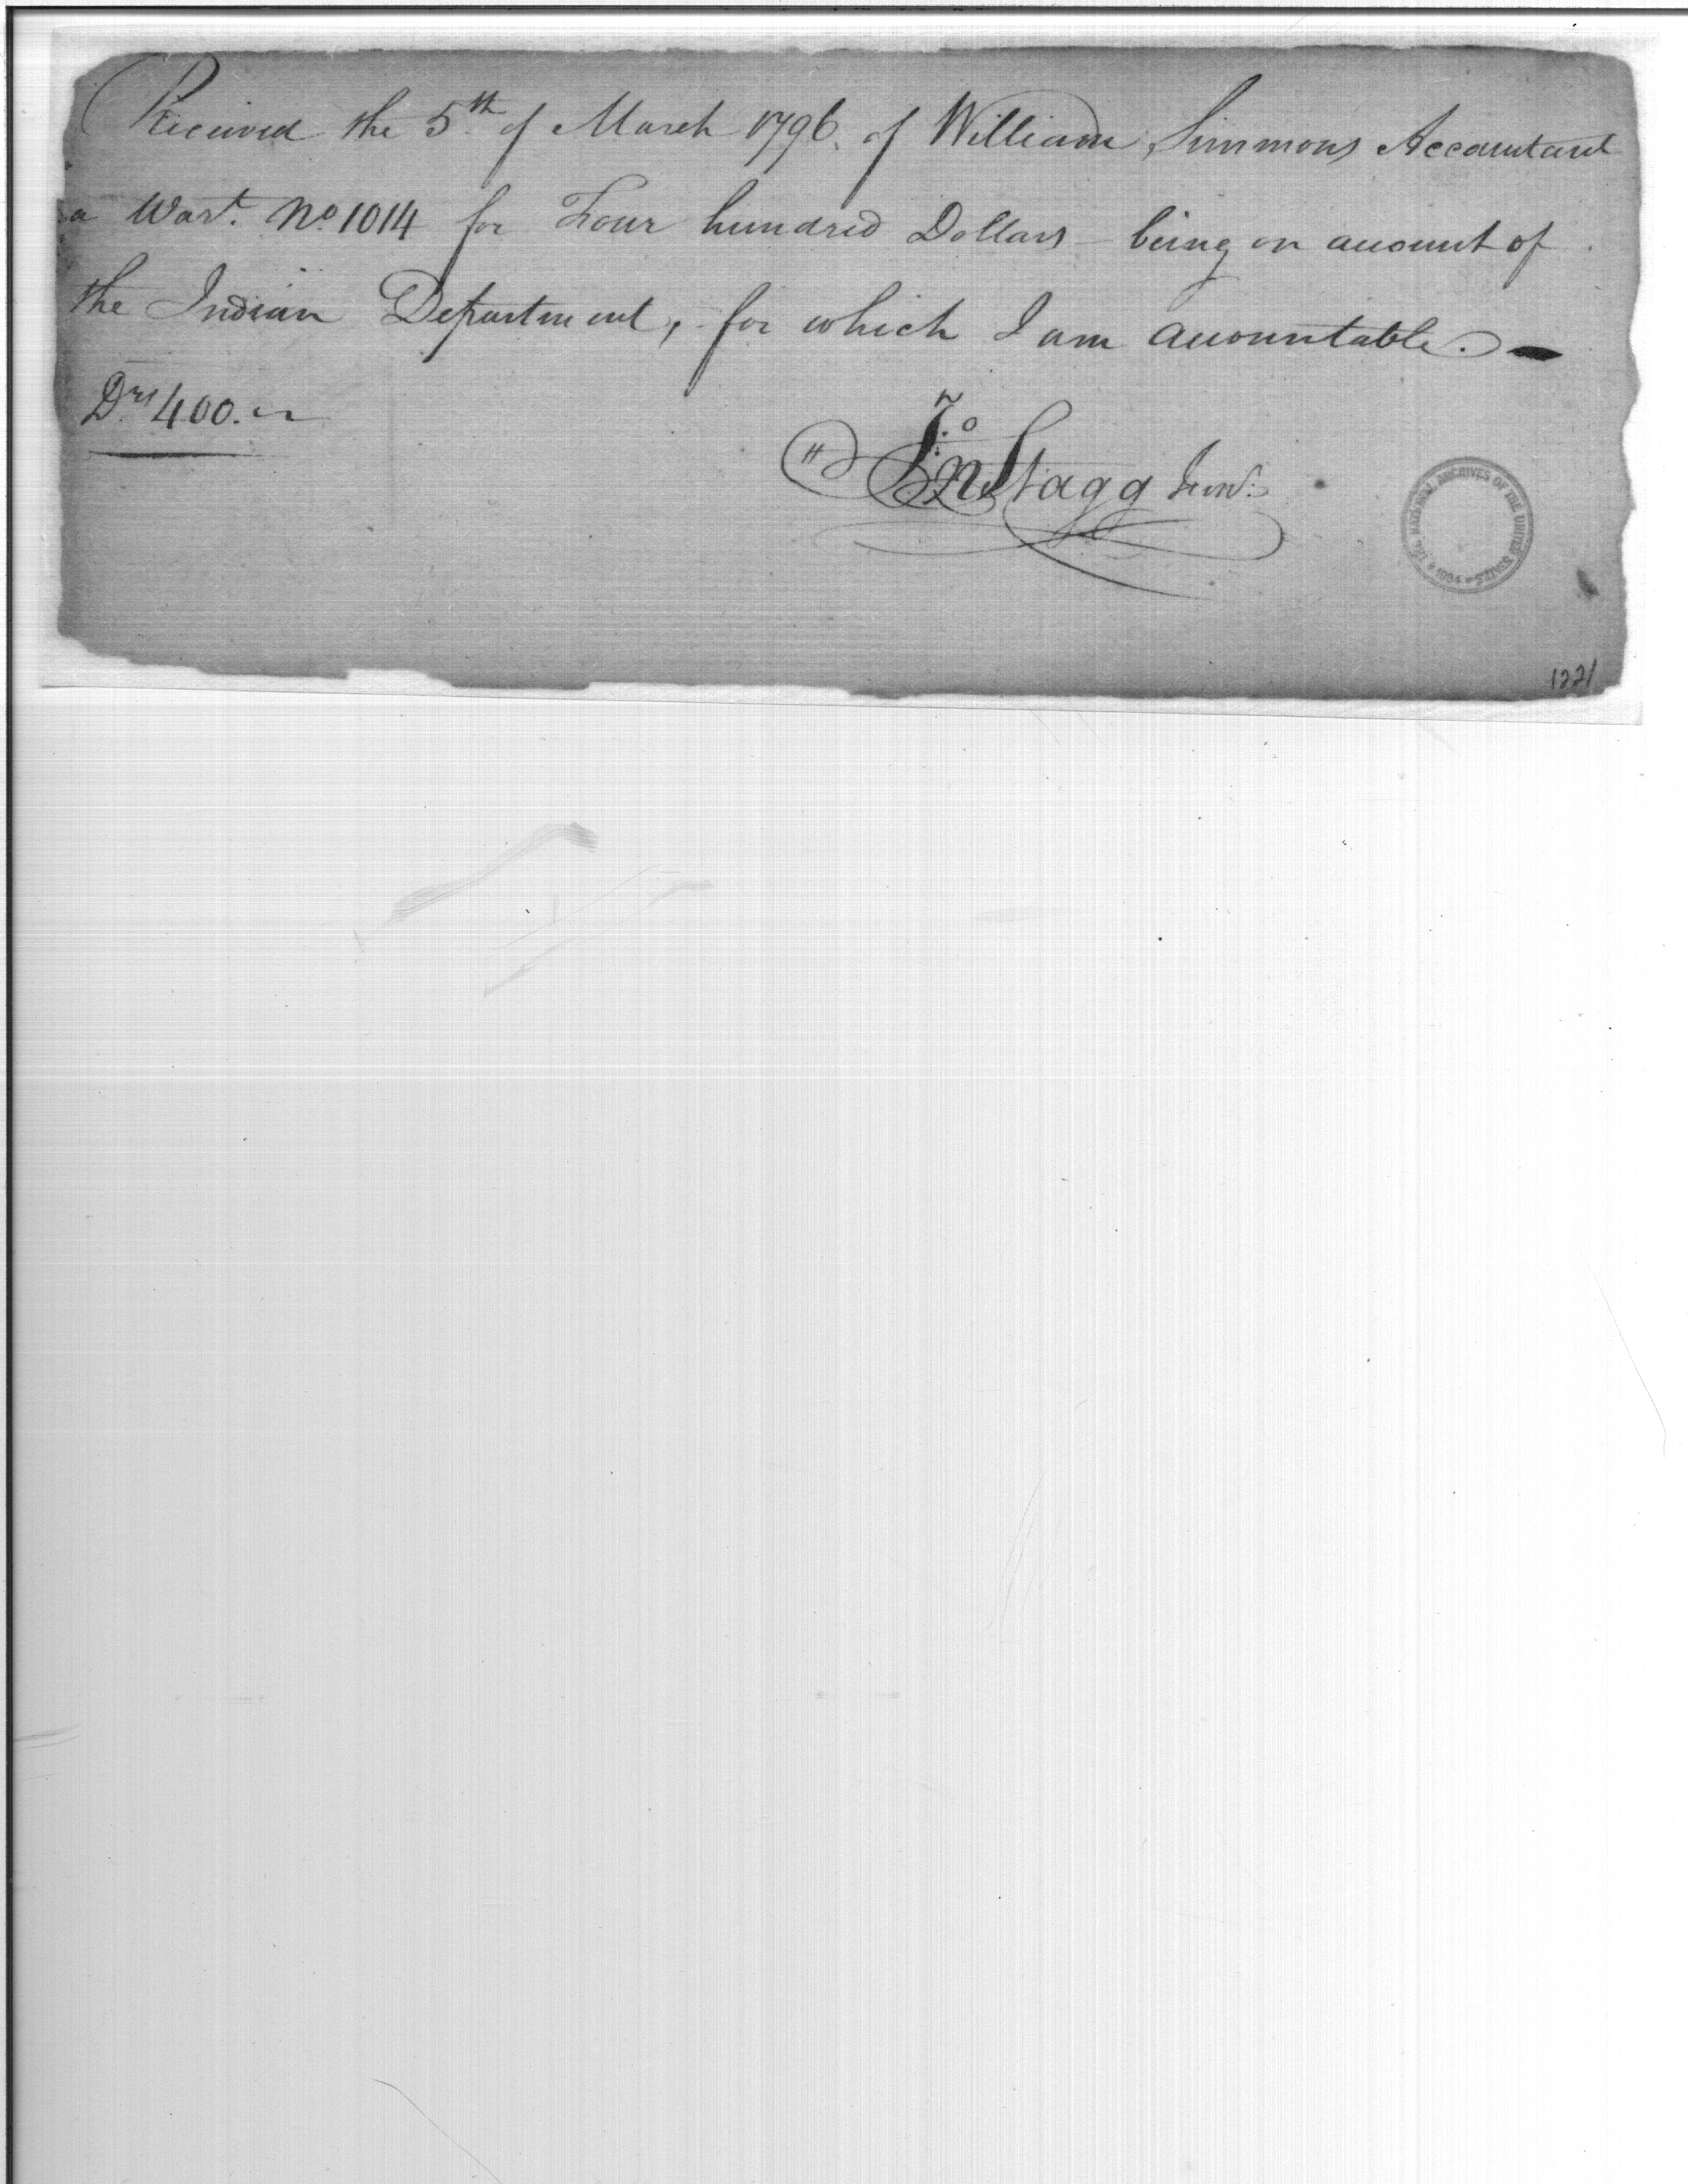 Received the 5th of March 1796. of William Simmons Accountant
a Wart. No. 1014 for Four hundred Dollars - being on account of
the Indian Department, for which I am accountable. —
Drs 400. —
Jno Stagg Junr.
THE NATIONAL ARCHIVES OF THE UNITED STATES
1934
1221